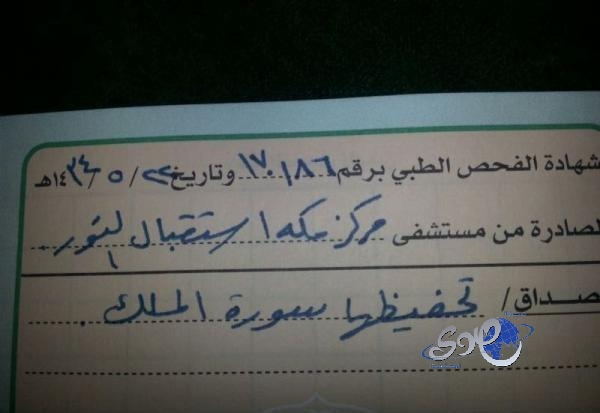 شهادة الفحص الطبي برقم ١٧٠١٨٦ وتاريخ ٢٢/٥/١٤٣٤هـ
الصادرة من مستشفى مركز مكه استقبال النور
الصداق/ تحفيظها سورة الملك
صدى